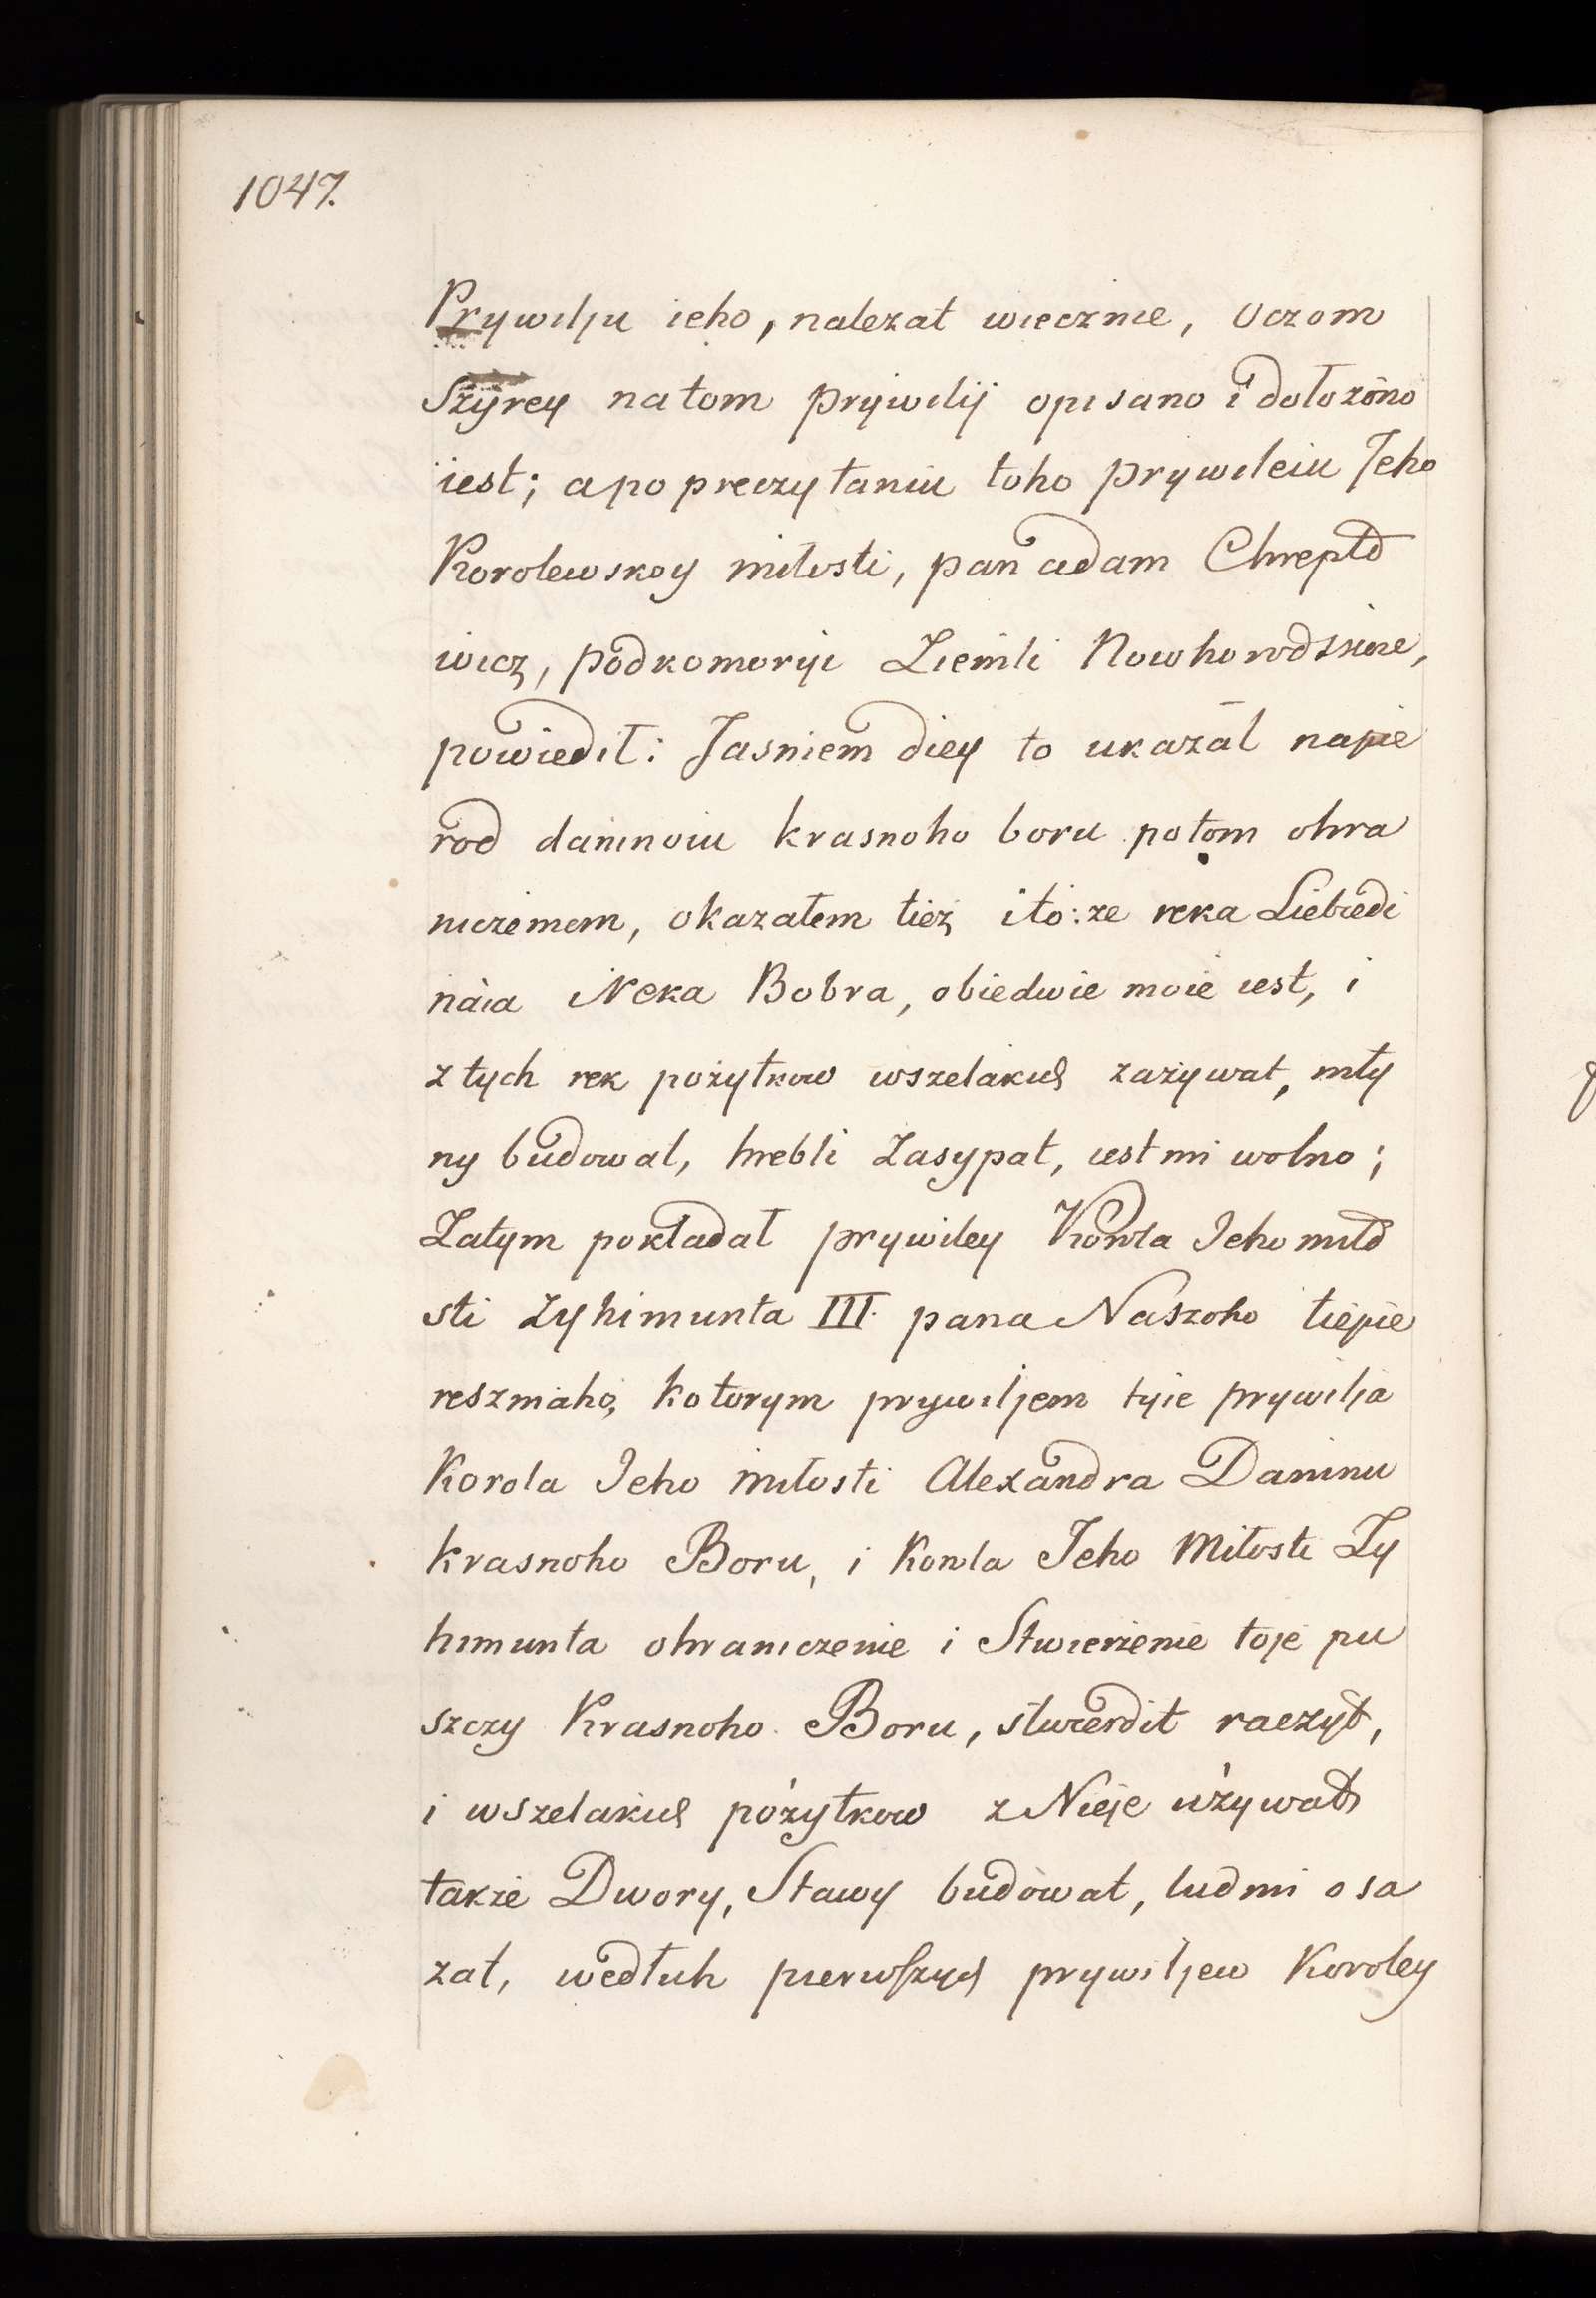 1047.
Prywilju ieho, nalezat wiecznie, Oczom
Szyrey natom prywilij opisano i dołożono
iest; a po preczytaniu toho prywileiu Jeho
Korolewskoy miłosti, pan adam Chrepto
wicz, podkomoryi Ziemli Nowhorodskiie,
powiedił: Jasniem diey to ukazał napie
rod daninoiu krasnoho boru potom ohra
niczeniem, okazałem tież i to: ze reka Liebiedi
naia i Reka Bobra, obiedwie moie iest, i
z tych rek pożytkow wszelakich zażywat, mły
ny budowat, hrebli zasypat, iest mi wolno;
Zatym pokładał prywiley Korola Jeho miło
sti Zyhimunta III. pana Naszoho tiepie
reszniaho, kotorym prywiljem tyie prywilja
Korola Jeho miłosti Alexandra Daninu
krasnoho Boru, i Korola Jeho Miłosti Zy
himunta ohraniczenie i Stwierżenie toje pu
szczy Krasnoho Boru, stwierdit raczył,
i wszelakich pożytkow z Nieje używat
także Dwory, Stawy budowat, ludmi osa
zat, wedłuh pierwszych prywiljew Koroley